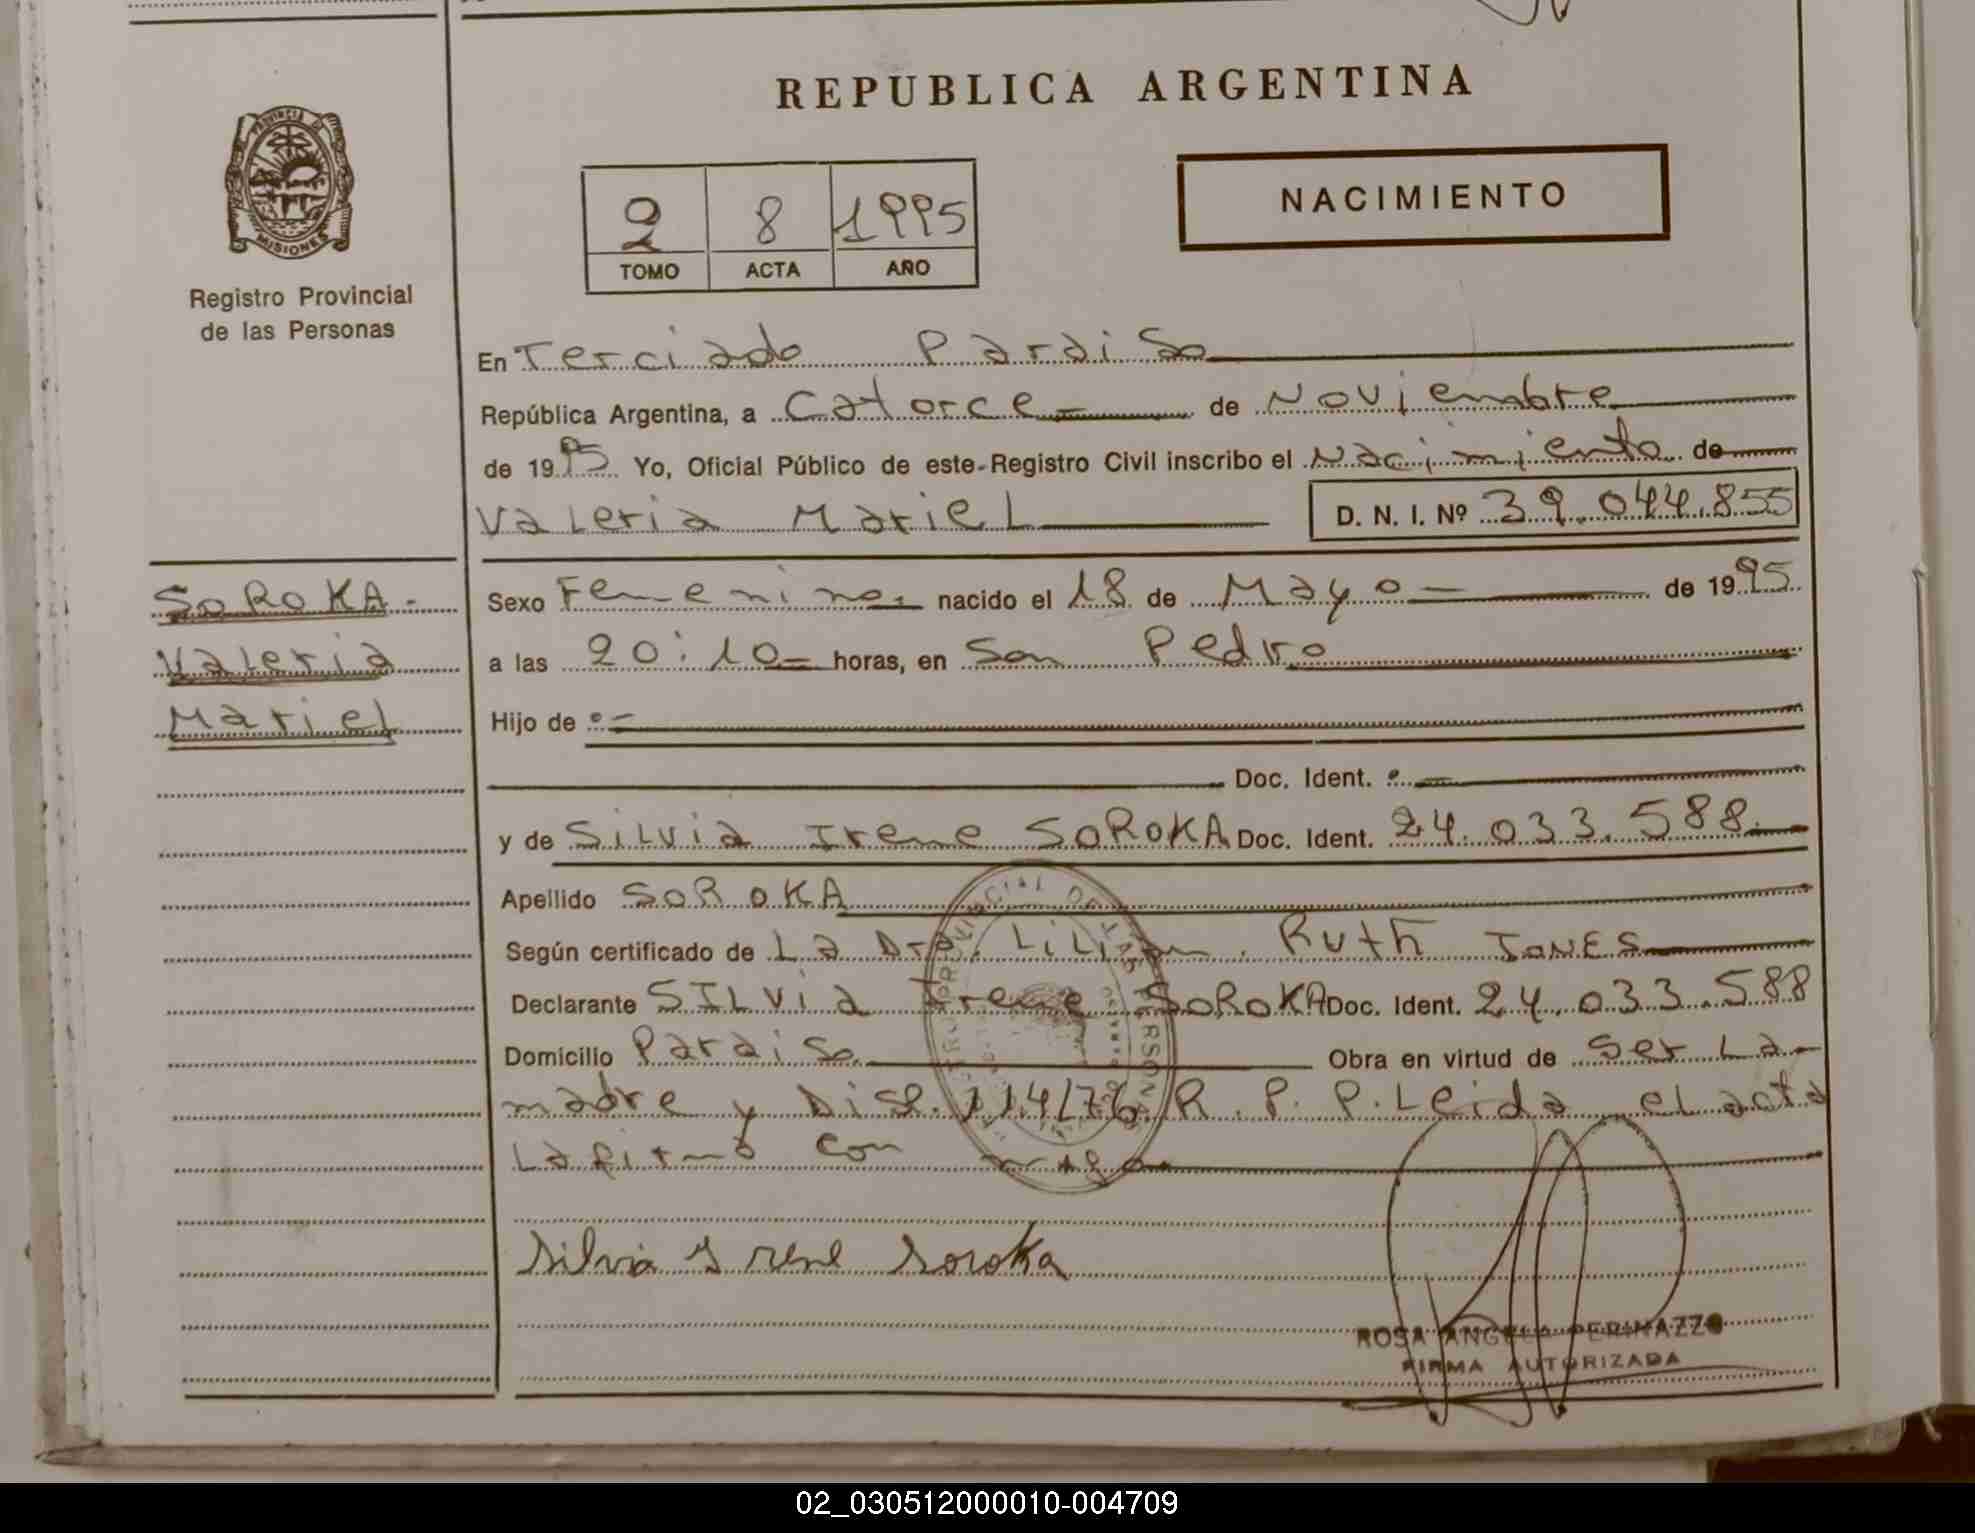 REPUBLICA ARGENTINA
PROVINCIA DE
MISIONES
Registro Provincial
de las Personas
2 8 1995
TOMO ACTA AÑO
NACIMIENTO
En Terciado Paraiso
República Argentina, a Catorce de Noviembre
de 1995 Yo, Oficial Público de este Registro Civil inscribo el Nacimiento de
Valeria Mariel D. N. I. Nº 39.044.855
SOROKA.
Valeria
Mariel
Sexo Femenino. nacido el 18 de Mayo de 1995
a las 20:10 horas, en San Pedro
Hijo de
Doc. Ident.
y de Silvia Irene SOROKA Doc. Ident. 24.033.588
Apellido SOROKA
Según certificado de La Dra. Lilian Ruth JONES
Declarante SILvia Irene SOROKA Doc. Ident. 24.033.588
Domicilio Paraiso Obra en virtud de Ser La
madre y Disp. 114/76 R.P.P. Leida el acta
La firmó con migo
Silvia Irene Soroka
ROSA ANGELA PERINAZZO
FIRMA AUTORIZADA
02_030512000010-004709